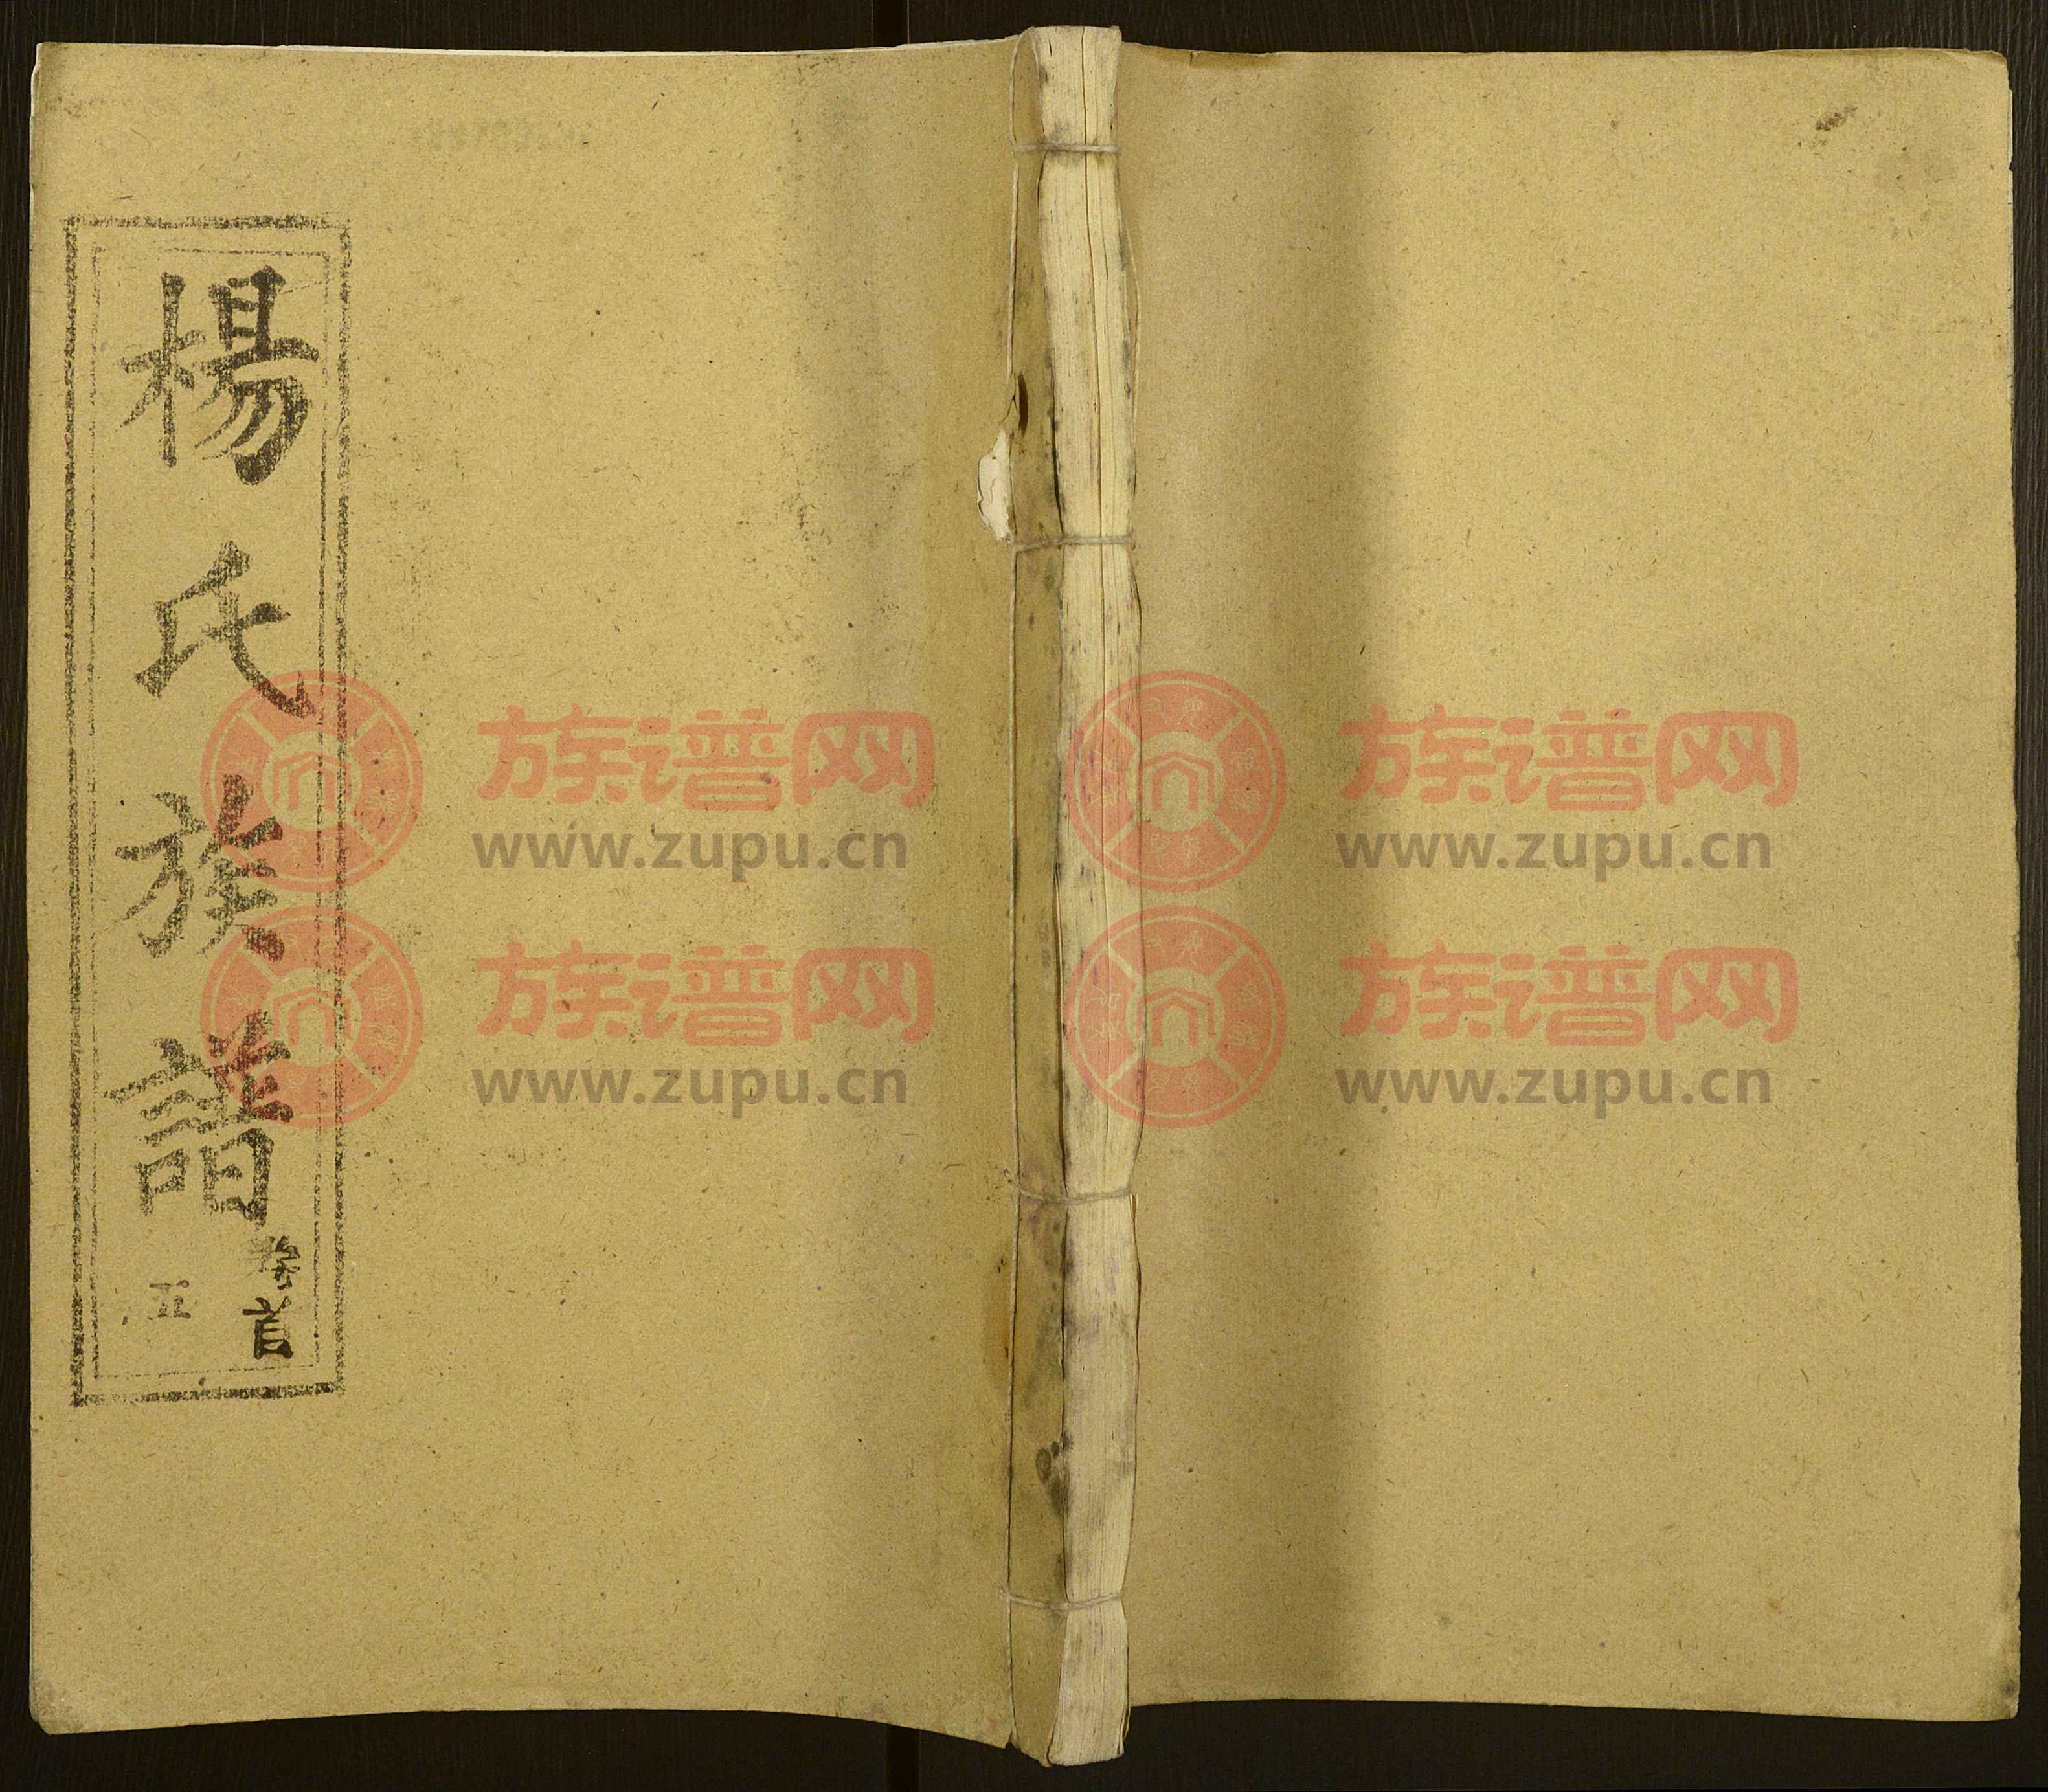 楊氏族譜
卷首
五
族谱网
www.zupu.cn
族谱网
www.zupu.cn
族谱网
www.zupu.cn
族谱网
www.zupu.cn